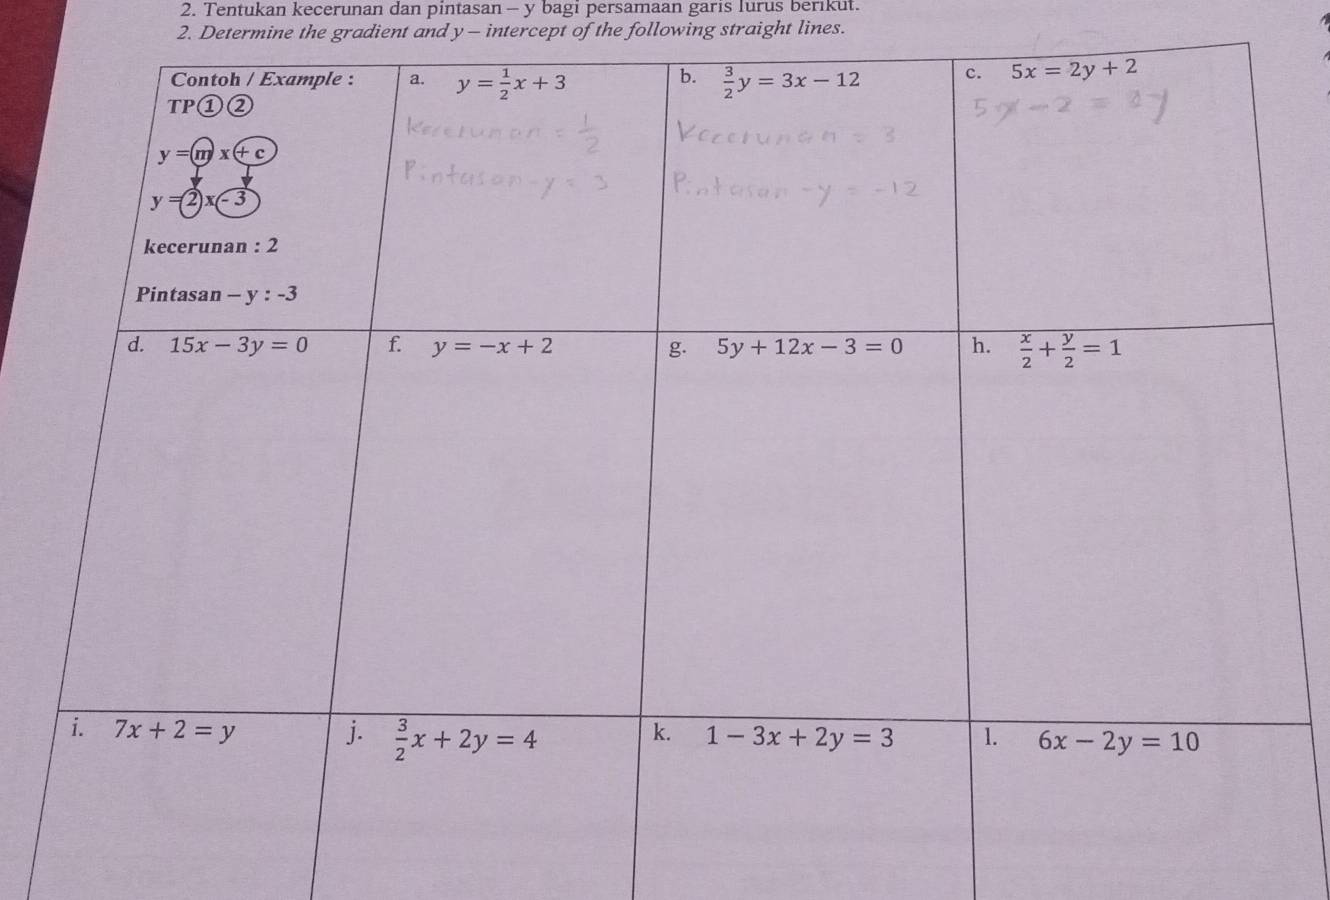 2. Tentukan kecerunan dan pintasan – y bagi persamaan garis lurus berikut.
2. Determine the gradient and y – intercept of the following straight lines.
Contoh / Example :
TP①②
y = m x + c
y = 2 x - 3
kecerunan : 2
Pintasan – y : -3
a. y = 1/2 x + 3
Kecerunan = 1/2
Pintasan - y = 3
b. 3/2 y = 3x − 12
Kecerunan = 3
Pintasan - y = -12
c. 5x = 2y + 2
5x - 2 = 2y
d. 15x − 3y = 0
f. y = −x + 2
g. 5y + 12x − 3 = 0
h. x/2 + y/2 = 1
i. 7x + 2 = y
j. 3/2 x + 2y = 4
k. 1 − 3x + 2y = 3
l. 6x − 2y = 10